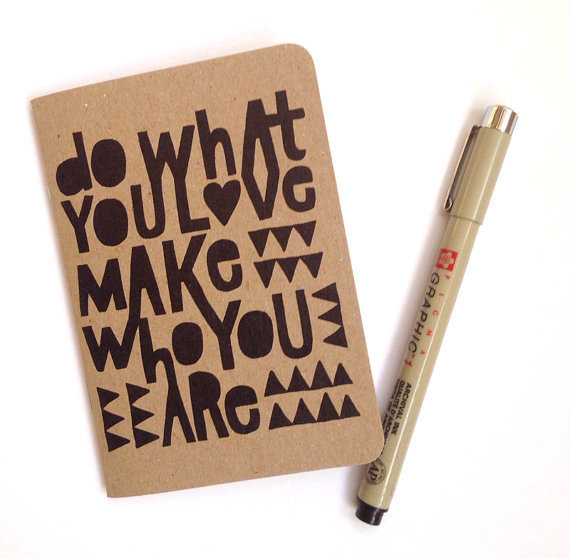 do what
YOU LOVE
MAKe
who YOU
ARe
PIGMA
GRAPHIC 1
ARCHIVAL INK
AP